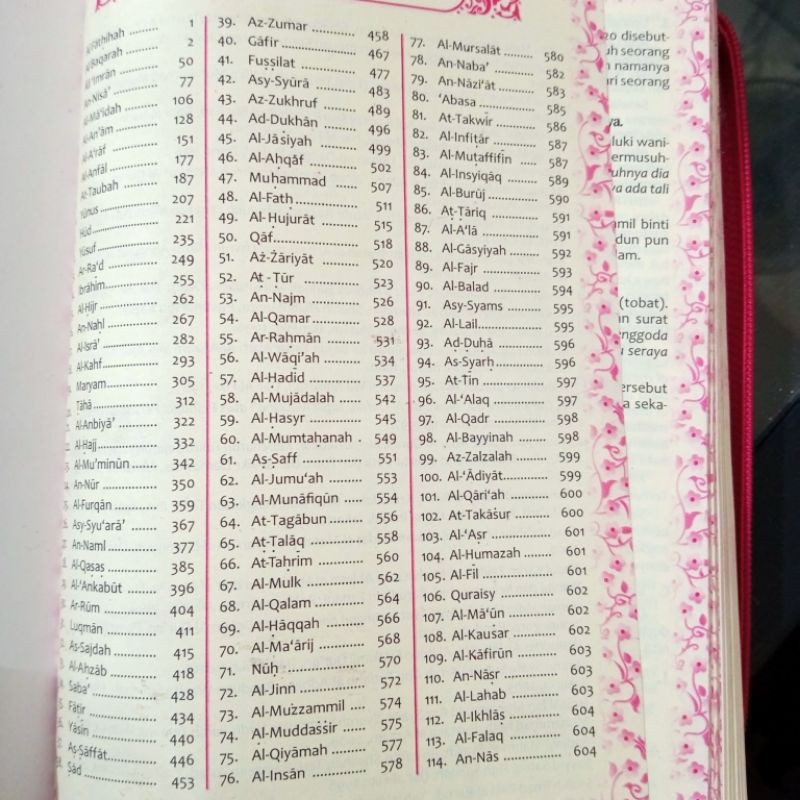 Al-Fātiḥah ........ 1
Al-Baqarah ........ 2
'Imrān ........ 50
An-Nisā' ........ 77
Al-Mā'idah ........ 106
Al-An'ām ........ 128
Al-A'rāf ........ 151
Al-Anfāl ........ 177
At-Taubah ........ 187
Yūnus ........ 207
Hūd ........ 221
Yūsuf ........ 235
Ar-Ra'd ........ 249
Ibrāhīm ........ 255
Al-Ḥijr ........ 262
An-Naḥl ........ 267
Al-Isrā' ........ 282
Al-Kahf ........ 293
Maryam ........ 305
Ṭāhā ........ 312
Al-Anbiyā' ........ 322
Al-Ḥajj ........ 332
Al-Mu'minūn ........ 342
An-Nūr ........ 350
Al-Furqān ........ 359
Asy-Syu'arā' ........ 367
An-Naml ........ 377
Al-Qaṣaṣ ........ 385
Al-'Ankabūt ........ 396
Ar-Rūm ........ 404
Luqmān ........ 411
As-Sajdah ........ 415
Al-Aḥzāb ........ 418
Saba' ........ 428
Fāṭir ........ 434
Yāsīn ........ 440
Aṣ-Ṣāffāt ........ 446
Ṣād ........ 453
39. Az-Zumar ........ 458
40. Gāfir ........ 467
41. Fuṣṣilat ........ 477
42. Asy-Syūrā ........ 483
43. Az-Zukhruf ........ 489
44. Ad-Dukhān ........ 496
45. Al-Jāṡiyah ........ 499
46. Al-Aḥqāf ........ 502
47. Muḥammad ........ 507
48. Al-Fatḥ ........ 511
49. Al-Ḥujurāt ........ 515
50. Qāf ........ 518
51. Aż-Żāriyāt ........ 520
52. Aṭ-Ṭūr ........ 523
53. An-Najm ........ 526
54. Al-Qamar ........ 528
55. Ar-Raḥmān ........ 531
56. Al-Wāqi'ah ........ 534
57. Al-Ḥadīd ........ 537
58. Al-Mujādalah ........ 542
59. Al-Ḥasyr ........ 545
60. Al-Mumtaḥanah . 549
61. Aṣ-Ṣaff ........ 551
62. Al-Jumu'ah ........ 553
63. Al-Munāfiqūn ..... 554
64. At-Tagābun ........ 556
65. Aṭ-Ṭalāq ........ 558
66. At-Taḥrīm ........ 560
67. Al-Mulk ........ 562
68. Al-Qalam ........ 564
69. Al-Ḥāqqah ........ 566
70. Al-Ma'ārij ........ 568
71. Nūḥ ........ 570
72. Al-Jinn ........ 572
73. Al-Muzzammil .... 574
74. Al-Muddaṡṡir ...... 575
75. Al-Qiyāmah ........ 577
76. Al-Insān ........ 578
77. Al-Mursalāt ........ 580
78. An-Naba' ........ 582
79. An-Nāzi'āt ........ 583
80. 'Abasa ........ 585
81. At-Takwīr ........ 586
82. Al-Infiṭār ........ 587
83. Al-Muṭaffifīn ..... 587
84. Al-Insyiqāq ........ 589
85. Al-Burūj ........ 590
86. Aṭ-Ṭāriq ........ 591
87. Al-A'lā ........ 591
88. Al-Gāsyiyah ........ 592
89. Al-Fajr ........ 593
90. Al-Balad ........ 594
91. Asy-Syams ........ 595
92. Al-Lail ........ 595
93. Aḍ-Ḍuḥā ........ 596
94. As-Syarḥ ........ 596
95. At-Tīn ........ 597
96. Al-'Alaq ........ 597
97. Al-Qadr ........ 598
98. Al-Bayyinah ...... 598
99. Az-Zalzalah ....... 599
100. Al-'Ādiyāt ........ 599
101. Al-Qāri'ah ........ 600
102. At-Takāṡur ........ 600
103. Al-'Aṣr ........ 601
104. Al-Humazah ..... 601
105. Al-Fīl ........ 601
106. Quraisy ........ 602
107. Al-Mā'ūn ........ 602
108. Al-Kauṡar ........ 602
109. Al-Kāfirūn ........ 603
110. An-Nāṣr ........ 603
111. Al-Lahab ........ 603
112. Al-Ikhlāṣ ........ 604
113. Al-Falaq ........ 604
114. An-Nās ........ 604
disebut-
seorang
namanya
seorang
ya.
luki wani-
ermusuh-
dia
ada tali
binti
dun pun
(tobat).
surat
enggoda
seraya
ersebut
seka-